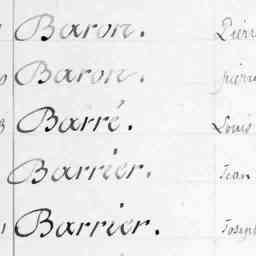 Baron. Pierr
Baron. pierr
Barré. Louis
Barrier. Jean
Barrier. Joseph